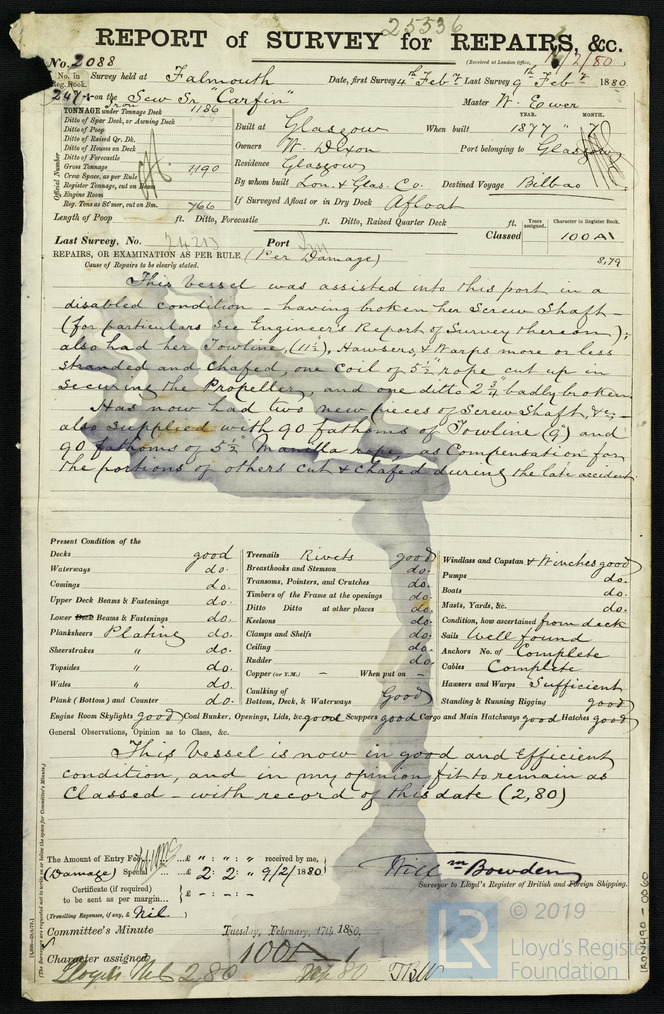 25536
REPORT of SURVEY for REPAIRS, &c.
No. 2088
(Received at London Office, 10/2/80.)
No. in Reg. Book. Survey held at Falmouth Date, first Survey 4th Feby Last Survey 9th Feby 1880
247 on the Iron Scw Sr. "Carfin" Master W. Ewer
TONNAGE under Tonnage Deck 1186
Ditto of Spar, or Awning Deck
Ditto of Poop
Ditto of Raised Qr. Dk.
Ditto of Houses on Deck
Ditto of Forecastle
Gross Tonnage 1190
Crew Space, as per Rule
Register Tonnage, cut on Beam
Engine Room
Reg. Tons as St'mer, cut on Bm. 766
Official Number
YEAR. MONTH.
Built at Glasgow When built 1877 " 7
Owners W. Dixon Port belonging to Glasgow
Residence Glasgow
By whom built Lon. & Glas. Co. Destined Voyage Bilbao
If Surveyed Afloat or in Dry Dock Afloat
Length of Poop ft. Ditto, Forecastle ft. Ditto, Raised Quarter Deck ft.
Years assigned. Character in Register Book.
Last Survey, No. Port Classed 100A1
8,79
REPAIRS, OR EXAMINATION AS PER RULE (Per Damage)
Cause of Repairs to be clearly stated.
This Vessel was assisted into this port in a
disabled condition - having broken her Screw Shaft -
(for particulars See Engineer's Report of Survey thereon);
also had her Towline, (11½), Hawsers, & Warps more or less
stranded and chafed, one coil of 5½" rope cut up in
securing the Propeller, and one ditto 2¾" badly broken
Has now had two new pieces of Screw Shaft, &c -
also supplied with 90 fathoms of Towline (9") and
90 fathoms of 5½" Manilla rope, as Compensation for
the portions of others cut & chafed during the late accident.
Present Condition of the
Decks good
Waterways do.
Comings do.
Upper Deck Beams & Fastenings do.
Lower Deck Beams & Fastenings do.
Planksheers Plating do.
Sheerstrakes " do.
Topsides " do.
Wales " do.
Plank (Bottom) and Counter do.
Treenails Rivets good
Breasthooks and Stemson do.
Transoms, Pointers, and Crutches do.
Timbers of the Frame at the openings do.
Ditto Ditto at other places do.
Keelsons do.
Clamps and Shelfs do.
Ceiling do.
Rudder do.
Copper (or Y.M.) - When put on -
Caulking of Bottom, Deck, & Waterways Good
Windlass and Capstan & Winches good
Pumps do.
Boats do.
Masts, Yards, &c. do.
Condition, how ascertained from deck
Sails Well found
Anchors No. of Complete
Cables Complete
Hawsers and Warps Sufficient
Standing & Running Rigging good
Engine Room Skylights good Coal Bunker, Openings, Lids, &c. good Scuppers good Cargo and Main Hatchways good Hatches good
General Observations, Opinion as to Class, &c.
This Vessel is now in good and Efficient
condition, and in my opinion fit to remain as
Classed - with record of this date (2,80)
The Amount of Entry Fee ...£ " : " : " received by me,
(Damage) Special ...£ 2 : 2 : " 9/2/1880
Certificate (if required) to be sent as per margin... £ - : - : -
(Travelling Expenses, if any, £ Nil.)
Willm Bowden
Surveyor to Lloyd's Register of British and Foreign Shipping.
Committee's Minute Tuesday, February, 17th 1880.
Character assigned 100A1
2,80
© 2019
LR
Lloyd's Register
Foundation
IRON490-0060